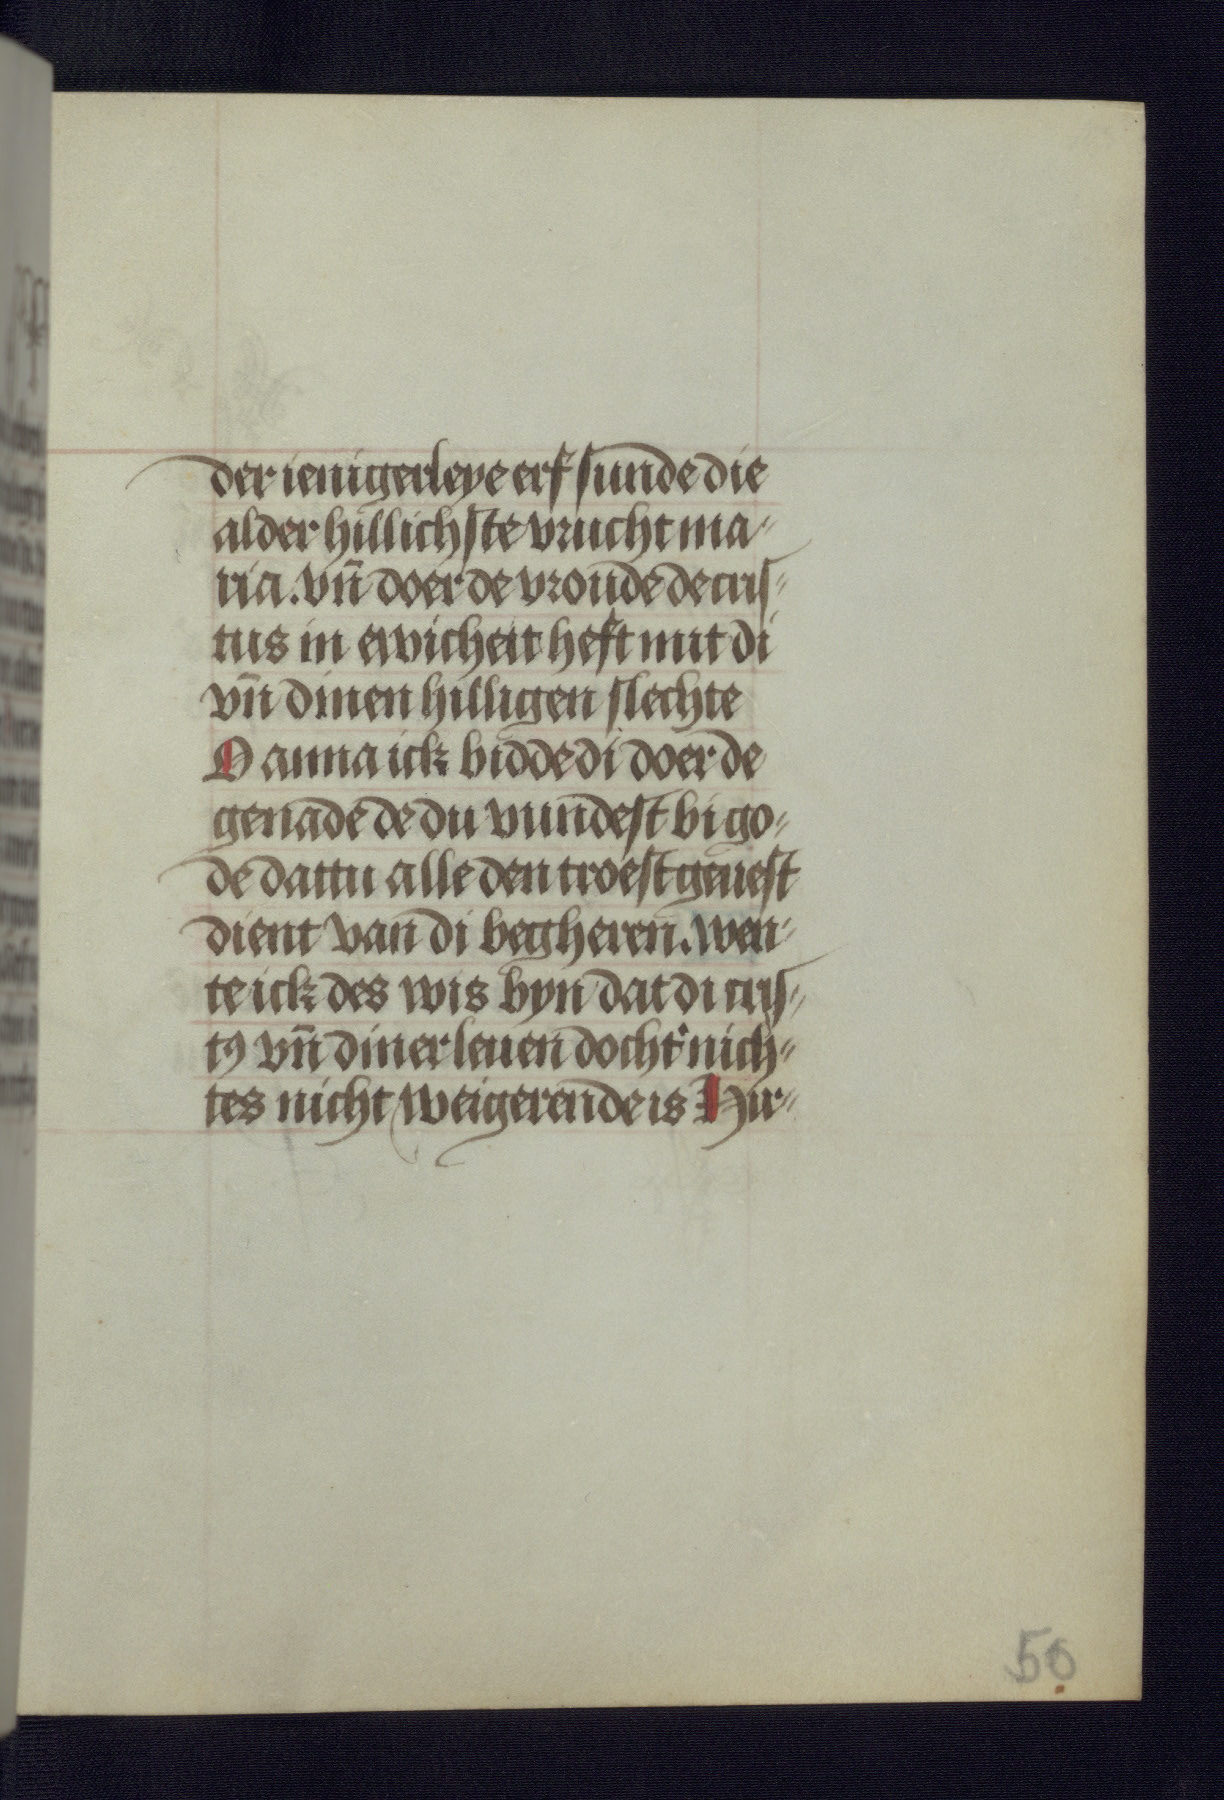 der ienigerleye erfsunde die
alder hillichste vrucht ma-
ria. vn̄ doer de vroude de cris-
tus in ewicheit heft mit di
vn̄ dinen hilligen slechte
O anna ick bidde di doer de
genade de du vundest bi go-
de dattu alle den troest geuest
dient van di begheren. wen-
te ick des wis byn dat di cris-
tꝰ vn̄ diner leuen docht' nich-
tes nicht weigerende is Hir-
50